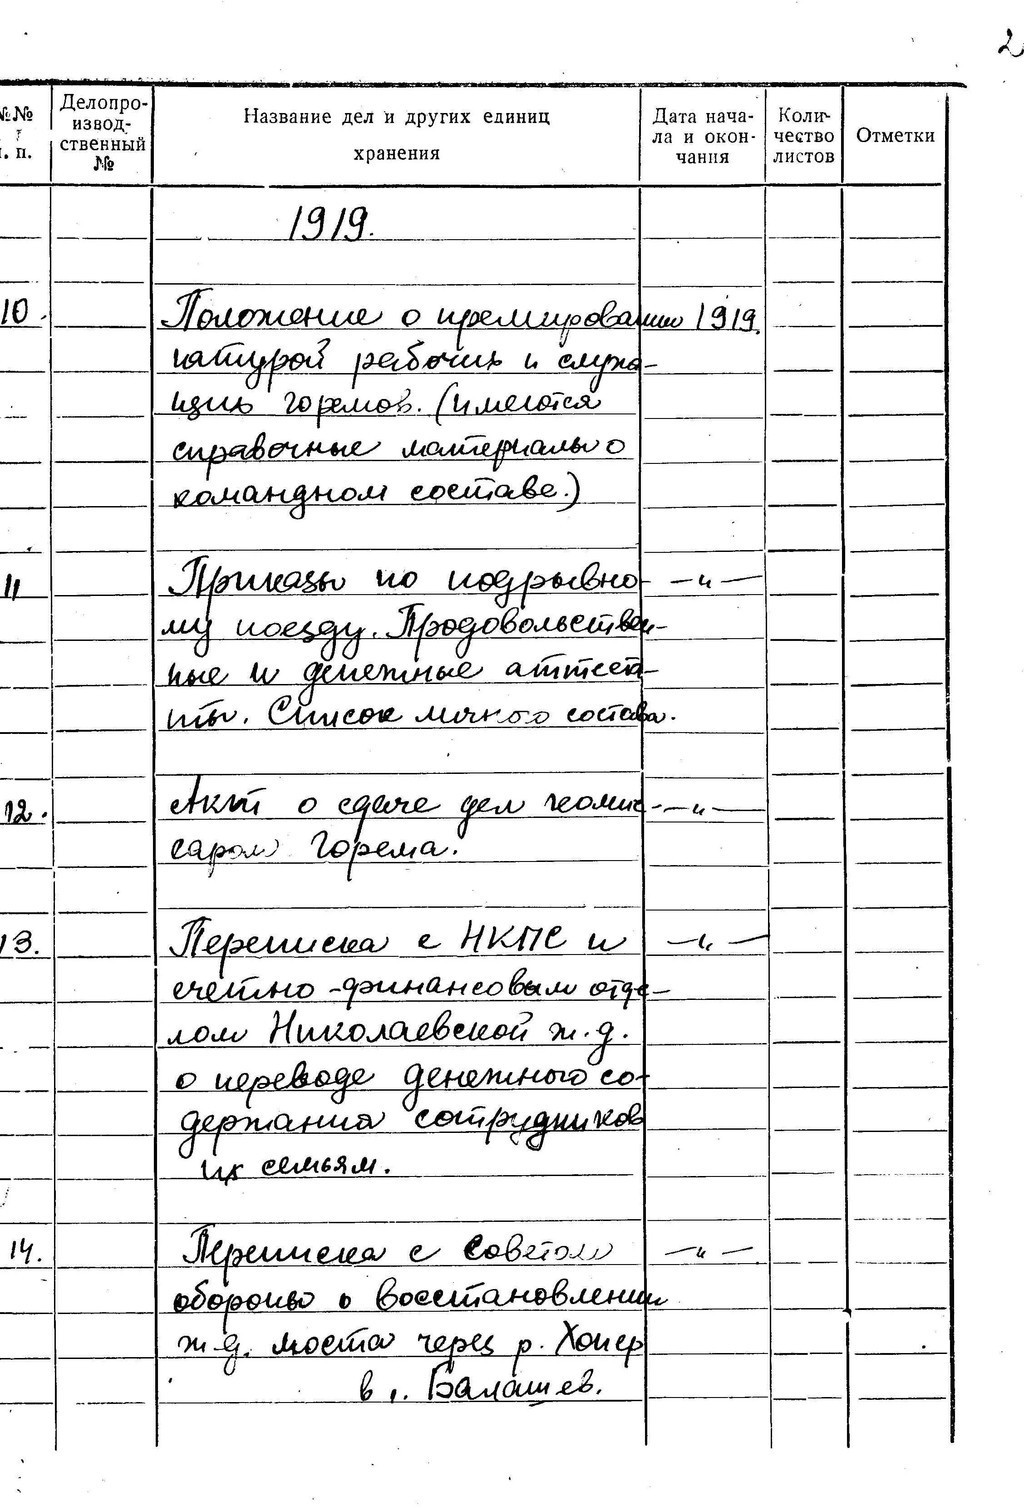 2
№№ п. п.
Делопро-
извод-
ственный
№
Название дел и других единиц
хранения
Дата нача-
ла и окон-
чания
Коли-
чество
листов
Отметки
1919.
10. Положение о премировании 1919.
натурой рабочих и служа-
щих горемов. (имеются
справочные материалы о
командном составе.)
11 Приказы по подрывно- —"—
му поезду. Продовольствен-
ные и денежные аттеста-
ты. Список личного состава.
12. Акт о сдаче дел комис- —"—
саром Горема.
13. Переписка с НКПС и —"—
счетно-финансовым отде-
лом Николаевской ж.д.
о переводе денежного со-
держания сотрудников
их семьям.
14. Переписка с Советом —"—
обороны о восстановлении
ж.д. моста через р. Хопер
в г. Балашев.